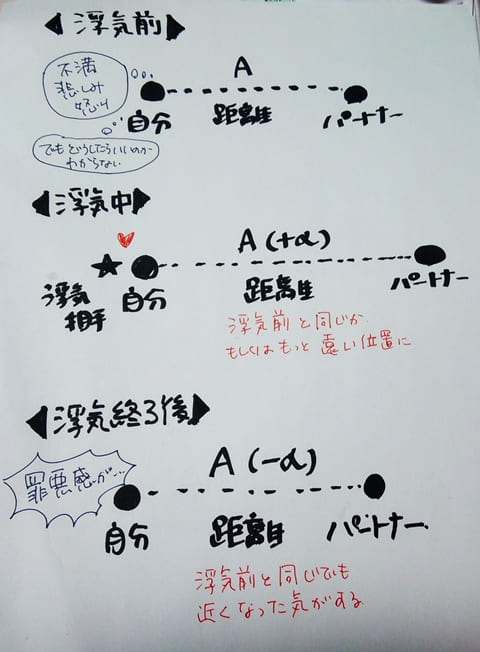 【浮気前】
不満
悲しみ
怒り
A
自分
距離
パートナー
でもどうしたらいいのか
わからない
【浮気中】
A(+α)
浮気
相手
自分
距離
パートナー
浮気前と同じか
もしくはもっと遠い位置に
【浮気終了後】
罪悪感が…
A(-α)
自分
距離
パートナー
浮気前と同じでも
近くなった気がする